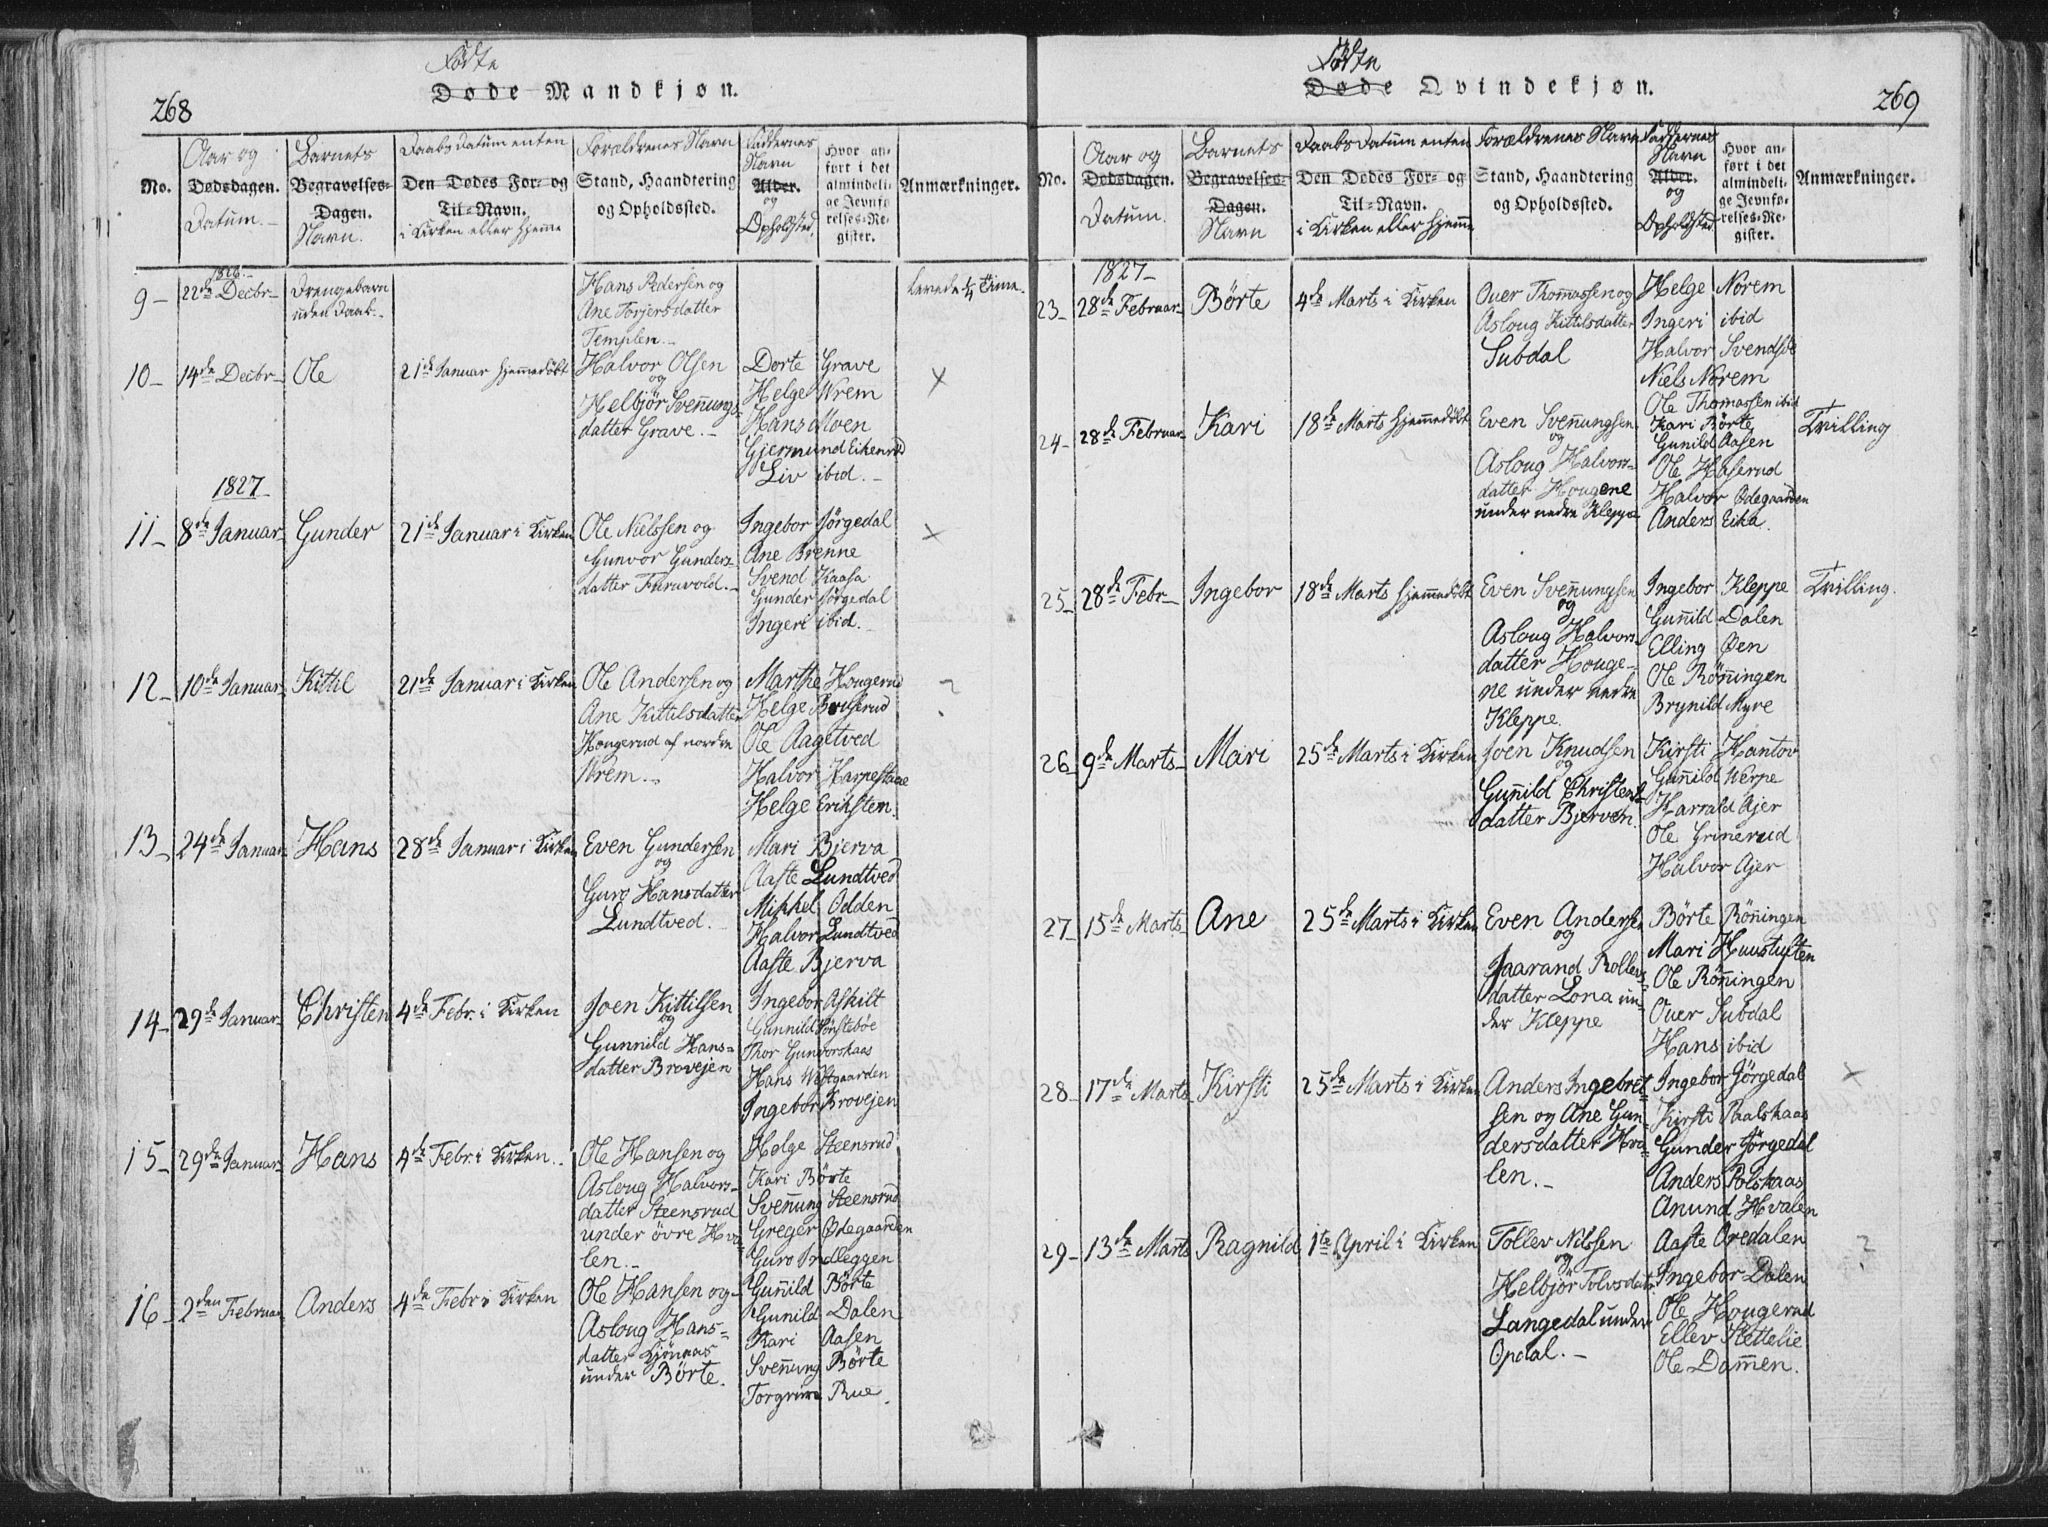 268
Fødte
Døde Mandkjøn.
No.
Aar og
Dødsdagen.
Datum.
Barnets
Begravelses-
Dagen.
Navn.
Daabs Datum enten
Den Dødes For- og
Til-Navn.
i Kirken eller Hjeme
Forældrenes Navn
Stand, Haandtering
og Opholdssted.
Faddernes
Navn
Alder.
og
Opholdsted.
Hvor an-
ført i det
almindeli-
ge Jevnfø-
relses-Re-
gister.
Anmærkninger.
9-
1826
22de Decbr-
Drengebarn
uden Daab.
Hans Pedersen og
Ane Torjersdatter
Templen.
levede 1/4 Time.
10-
14de Decbr-
Ole
21de Januar Hjemmedöbt
Halvor Olsen
og
Helbjör Svenungs-
datter Grave.
Dorte Grave
Helge Wrem
Hans Moen
Gjermund Eikenrud
Liv ibid.
×
1827
11-
8de Januar
Gunder
21de Januar i Kirken
Ole Nielssen og
Gunvor Gunders-
datter Furuvold.
Ingebor Jörgedal
Ane Brenne
Svend Kaasa
Gunder Jörgedal
Ingeri ibid.
×
12-
10de Januar
Kittil
21de Januar i Kirken
Ole Andersen og
Ane Kittilsdatter
Hougerud af nordre
Wrem.
Marthe Hougerud
Helge Bruserud
Ole Aagetved
Halvor Harpestaae
Helge Erikstem.
?
13-
24de Januar
Hans
28de Januar i Kirken
Even Gundersen
og
Guro Hansdatter
Lundtved.
Mari Bjerva
Aaste Lundtved
Mikkel Odden
Halvor Lundtved
Aaste Bjerva
14-
29de Januar
Christen
4de Febr. i Kirken
Joen Kittilsen
og
Gunnild Hans-
datter Brovejen
Ingebor Askilt
Gunnild Tönstebøe
Thor Gunvorskaas
Hans Westgaarden
Ingebor Brovejen
15-
29de Januar
Hans
4de Febr. i Kirken.
Ole Hansen og
Asloug Halvors-
datter Steensrud
under övre Hva-
len.
Helge Steensrud
Kari Börte
Svenung Steensrud
Greger Ødegaarden
Guro Præleggen
16-
2den Februar
Anders
4de Febr. i Kirken
Ole Hansen og
Asloug Hans-
datter Kjönaas
under Börte.
Gunild Börte
Gunild Dalen
Kari Aasen
Svenung Börte
Torgrim Rue.
269
Fødte
Døde Qvindekjøn.
No.
Aar og
Dødsdagen.
Datum.
Barnets
Begravelses-
Dagen.
Navn
Daabs Datum enten
Den Dødes For- og
Til-Navn.
i Kirken eller Hjemme
Forældrenes Navn
Stand, Haandtering
og Opholdssted.
Faddernes
Navn
Alder.
og
Opholdsted
Hvor an-
ført i det
almindeli-
ge Jevnfø-
relses-Re-
gister.
Anmærkninger.
1827-
23-
28de Februar
Börte
4de Marts i Kirken
Over Thomassen og
Asloug Kittilsdatter
Subdal
Helge Norem
Ingeri ibid
Halvor Svendsbö
Niels Norem
Ole Thomassen ibid
24-
28de Februar
Kari
18de Marts Hjemmedöbt
Even Svenungsen
og
Asloug Halvors-
datter Hougene
under nedre Kleppe
Kari Börte
Gunild Aasen
Ole Haserud
Halvor Ødegaarden
Anders Eika.
Tvilling
25-
28de Febr-
Ingebor
18de Marts Hjemmedöbt
Even Svenungsen
og
Asloug Halvors-
datter Houge-
ne under nedre
Kleppe.
Ingebor Kleppe
Gunild Dalen
Elling Øen
Ole Rönningen
Brynild Myre
Tvilling.
26-
9de Marts-
Mari
25de Marts i Kirken
Joen Knudsen
og
Gunild Christens-
datter Bjerven.
Kirsti Kantov
Gunild Werpe
Harrald Ajer
Ole Grinerud
Halvor Ajer
27-
15de Marts
Ane
25de Marts i Kirken
Even Andersen
og
Jaarand Rollev-
datter Lona un-
der Kleppe
Börte Röningen
Mari Huustuften
Ole Röningen
Over Subdal
Hans ibid
28-
17de Marts
Kirsti
25de Marts i Kirken
Anders Ingebret-
sen og Ane Gun-
dersdatter Hva-
len.
Ingebor Jörgedal
Kirsti Paalskaas
Gunder Jörgedal
Anders Polskaas
Anund Hvalen
×
29-
13de Marts
Ragnild
1ste April i Kirken
Tollev Nilssen
og
Helbjör Tolvsdatr
Langedal under
Opdal.
Aaste Oredalen
Ingebor Dalen
Ole Hougerud
Ellev Hettelie
Ole Dammen.
?